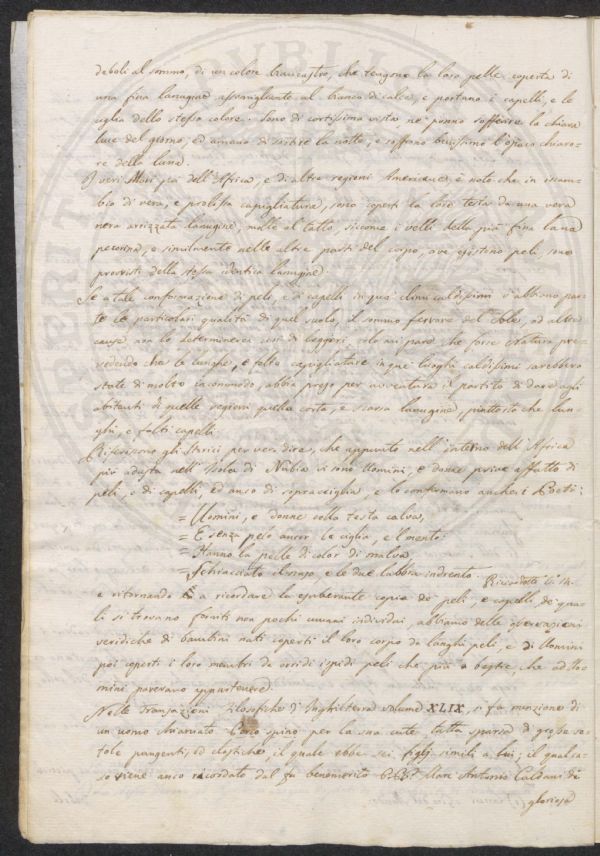 deboli al sommo, di un colore biancastro, che tengono la loro pelle coperta di
una fina lanugine assomigliante al bianco di calce, e portano i capelli, e le
ciglia dello stesso colore. Sono di cortissima vista, ne ponno soffrire la chiara
luce del giorno, ed amano di sortire la notte, e soffrono benissimo l'opaco chiaro-
re della luna.
I veri Mori poi dell'Africa, e di altre regioni Americane, è noto che in iscam-
bio di vera, e prolissa capigliatura, sono coperti la loro testa da una vera
nera arrizzata lanugine, molle al tatto, siccome i velli della più fina lana
pecorina, e similmente nelle altre parti del corpo, ove esistono peli, sono
provvisti della stessa identica lanugine.
Se a tale conformazione di peli, e di capelli in quei climi caldissimi v'abbiano par-
te le particolari qualità di quel suolo, il sommo fervore del Sole, od altre
cause non lo determinerei così di leggeri, solo mi pare che forse Natura pre-
vedendo che le lunghe, e folte capigliature in que' luoghi caldissimi sarebbero
state di molto incommodo, abbia preso per avventura il partito di dare agli
abitanti di quelle regioni quella corta, e scarsa lanugine, piuttosto che lun-
ghi, e folti capelli.
Riferiscono gli Storici per vero dire, che appunto nell'interno dell'Africa
più adusta nell'Isola di Nubia vi sono Uomini, e donne prive affatto di
peli, e di capelli, ed anco di sopraciglia, e lo confermano anche i Poeti:
= Uomini, e donne colla testa calva,
= E senza pelo ancor le ciglia, e 'l mento
= Hanno la pelle di color di malva
= Schiacciato il naso, e le due labbra indrento.
e ritornando a ricordare la esuberante copia de' peli, e capelli, de' qua-
li si trovano forniti non pochi umani individui, abbiamo delle osservazioni
veridiche di bambini nati coperti il loro corpo da lunghi peli, e di Uomini
poi coperti i loro membri da orridi ispidi peli che più a bestie, che ad Uo-
mini parevano appartenere.
Nelle Transazioni Filosofiche d'Inghilterra volume XLIX, si fa menzione di
un uomo chiamato Porco spino per la sua cute tutta sparsa di grosse se-
tole pungenti, ed elastiche, il quale ebbe sei figlj simili a lui; il qual ca-
so viene anco ricordato dal fu benemerito Marc Antonio Caldani di
gloriosa